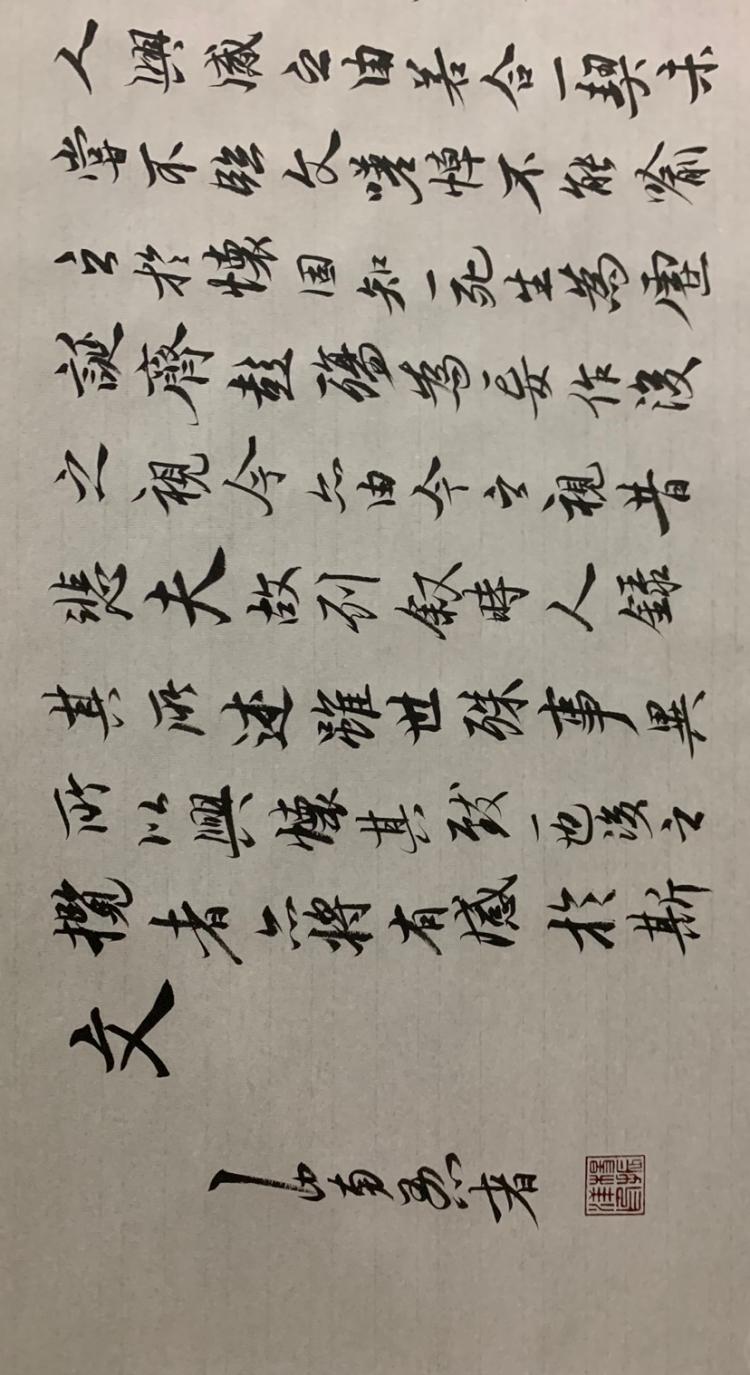 人興感之由若合一契未
嘗不臨文嗟悼不能喻
之於懷固知一死生為虛
誕齊彭殤為妄作後
之視今亦由今之視昔
悲夫故列叙時人錄
其所述雖世殊事異
所以興懷其致一也後之
攬者亦將有感於斯
文
山南者